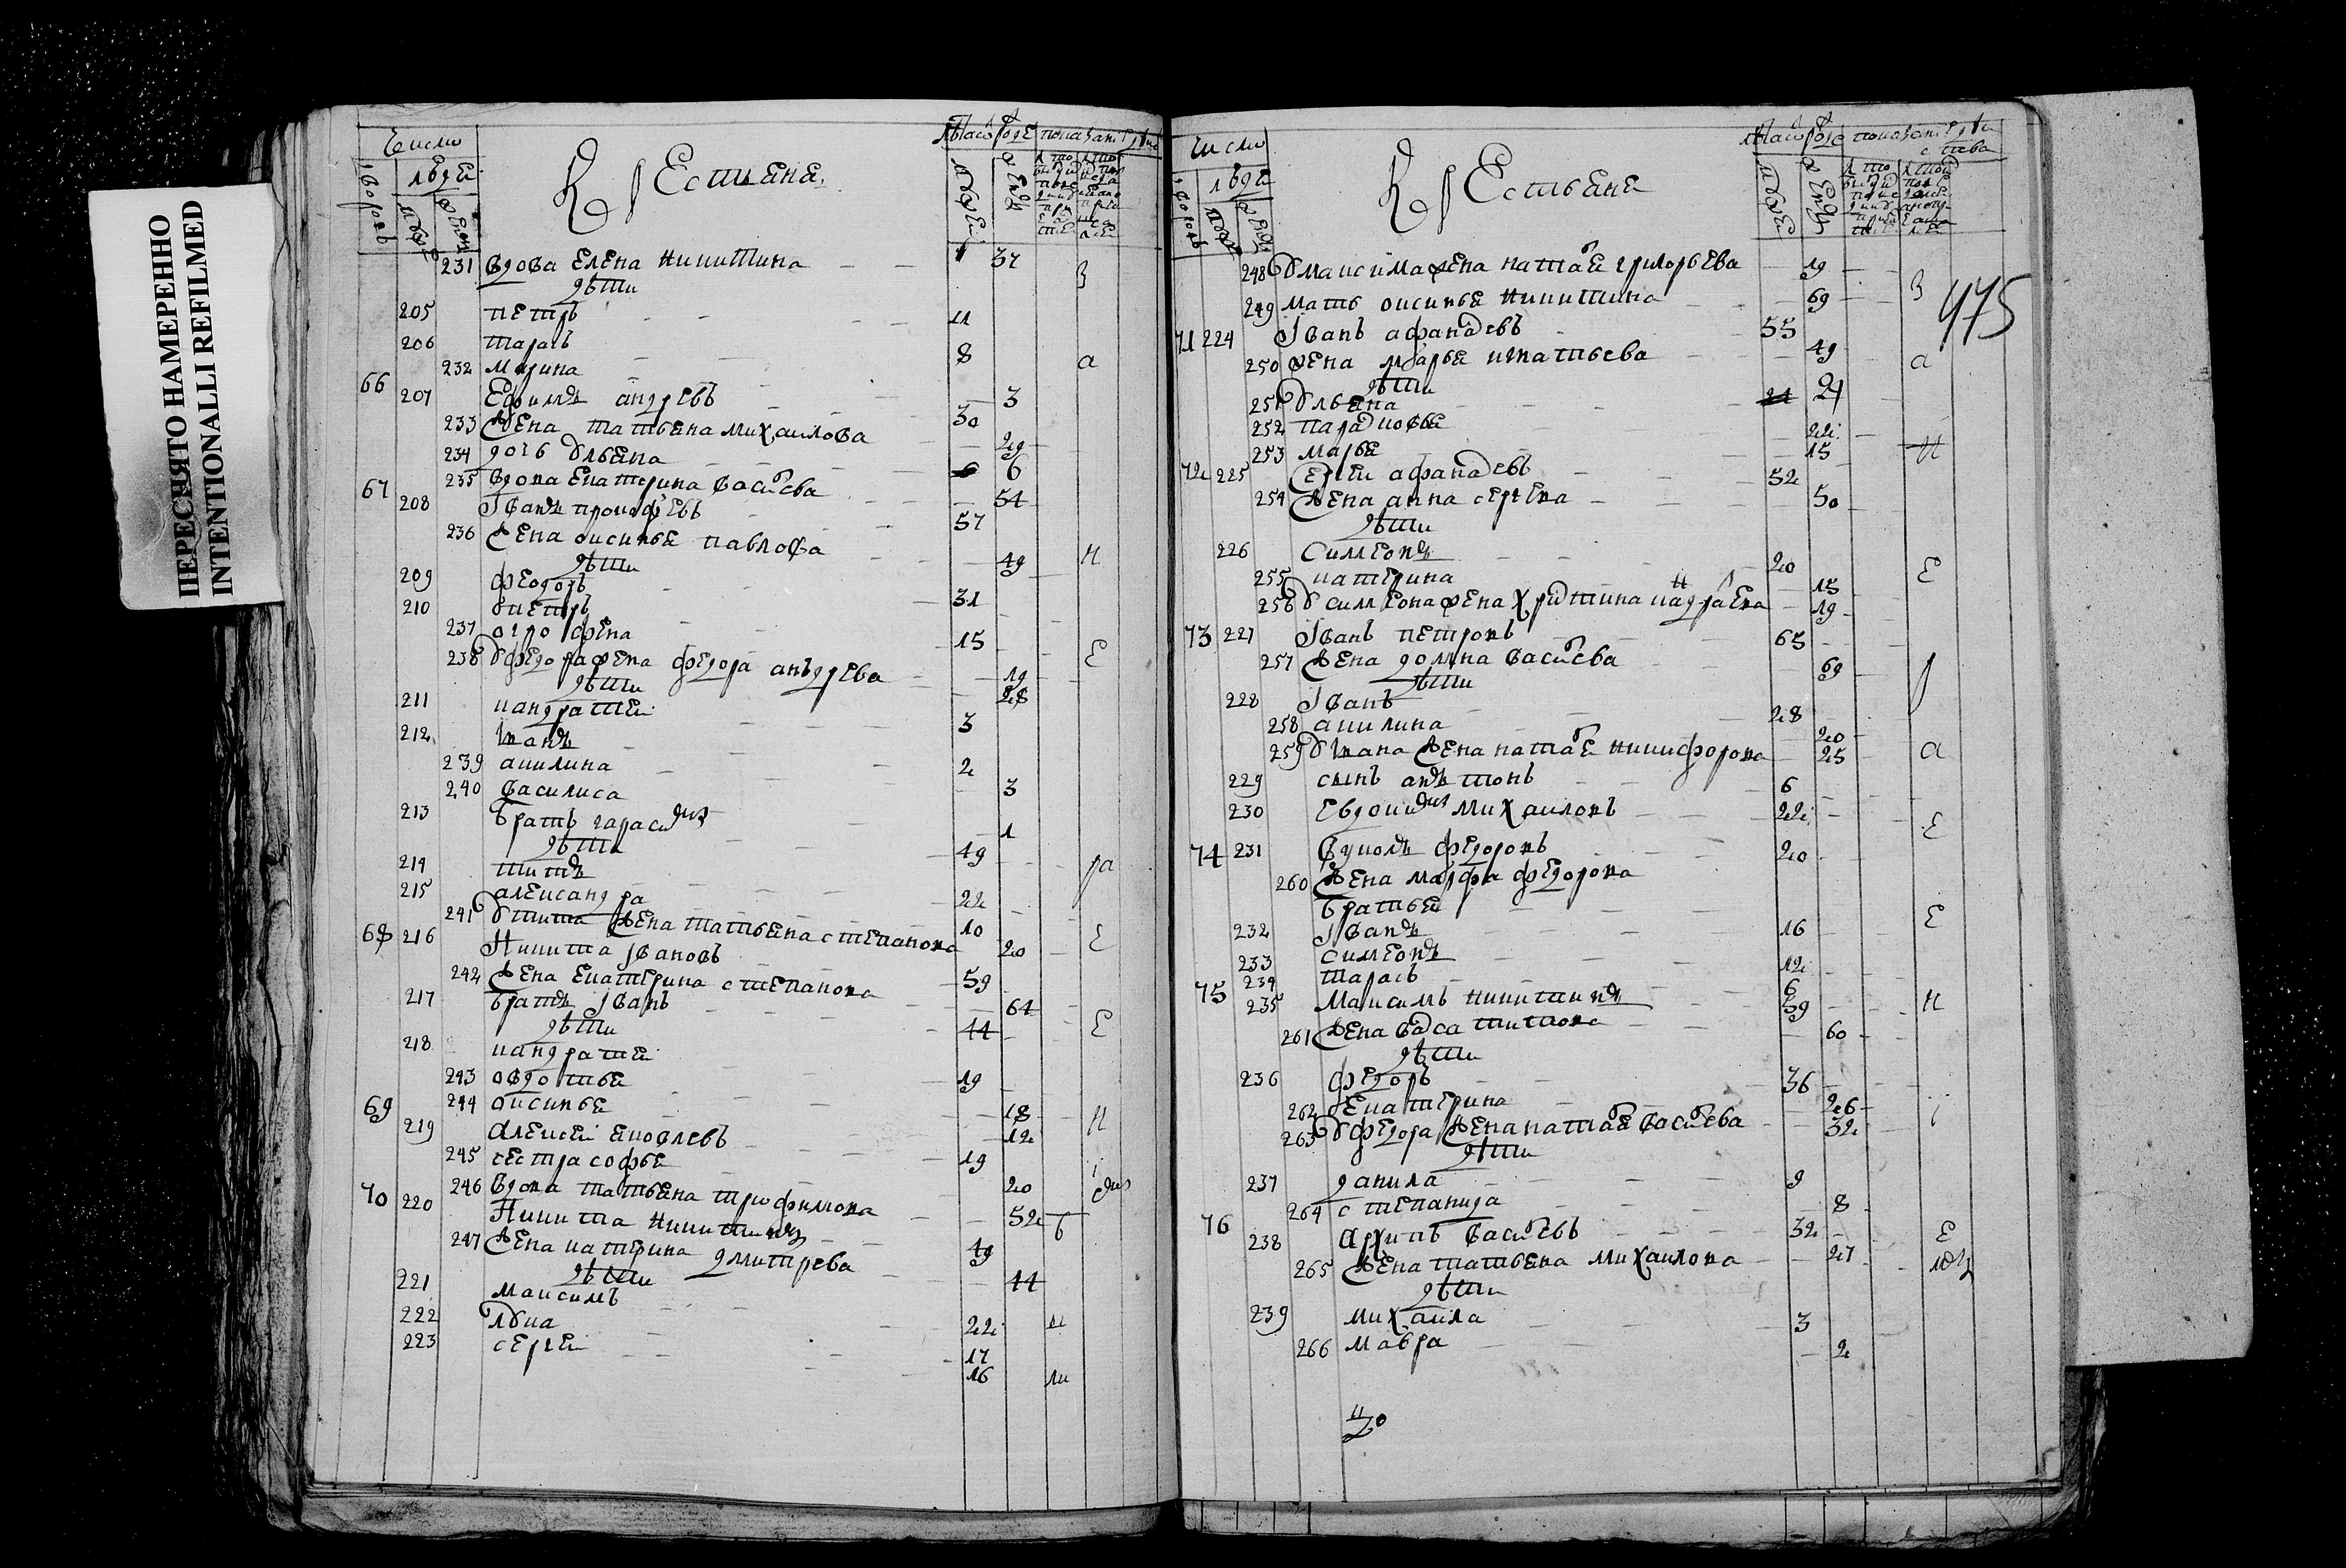 ПЕРЕСНЯТО НАМЕРЕННО
INTENTIONALLI REFILMED
Число
людей
Крестьяне
231 вдова Елена Никитина 37
дѣти
205 петръ 11
206 тарасъ 8
232 Марина 3
66 207 Ефимъ андревъ 30
233 жена татьѣна михаилова 29
234 дочь Ульѣна 6
235 вдова Екатерина васильева 54
67 208 Іванъ прокофѣевъ 57
236 жена аксинья павлова 49
дѣти
209 феодоръ 31
210 петръ 15
237 огрофена 19
238 У федора жена федора анъдрева 28
дѣти
211 кандратей 3
212 Іванъ 2
239 акилина 3
240 василиса 1
213 братъ гарасим 49
дѣти
214 титъ 22
215 александра 10
241 У тита жена татьѣна степанова 20
68 216 Никита Івановъ 59
242 жена Екатерина степанова 64
217 братъ Іванъ 44
дѣти
218 кандратей 19
243 овдотья 18
244 аксинья 12
69 219 алексей яковлевъ 19
245 сестра софья 20
246 вдова татьѣна трофимова 52
70 220 Никита Никитинъ 49
247 жена катерина дмитрева 44
дѣти
221 максимъ 22
222 лука 17
223 сергей 16
Число
людей
Крестьѣне
475
248 У максима жена наталья григорьева 19
249 мать аксинья Никитина 69
71 224 Іванъ афанасьевъ 55
250 жена марья игнатьева 49
дѣти
251 Ульѣна 24
252 парасковья 22
253 марья 15
72 225 Сергей афанасьевъ 52
254 жена анна сергева 50
дѣти
226 Симеонъ 20
255 катерина 15
256 У симеона жена христина кандраева 19
73 227 Іванъ петровъ 65
257 жена домна васильева 69
дѣти
228 Іванъ 28
258 акилина 20
259 У Івана жена наталья никифорова 25
229 сынъ антонъ 6
230 Евдоким михаиловъ 22
74 231 вуколъ федоровъ 20
260 жена марфа федорова
братья
232 Іванъ 16
233 симеонъ 12
234 тарасъ 6
75 235 максимъ никитинъ 59
261 жена васса титова 60
дѣти
236 федоръ 36
262 Екатерина 26
263 У федора жена наталья васильева 32
дѣти
237 данила 9
264 степанида 8
76 238 архипъ васильевъ 32
265 жена татьѣна михаилова 27
дѣти
239 михаила 3
266 мавра 2